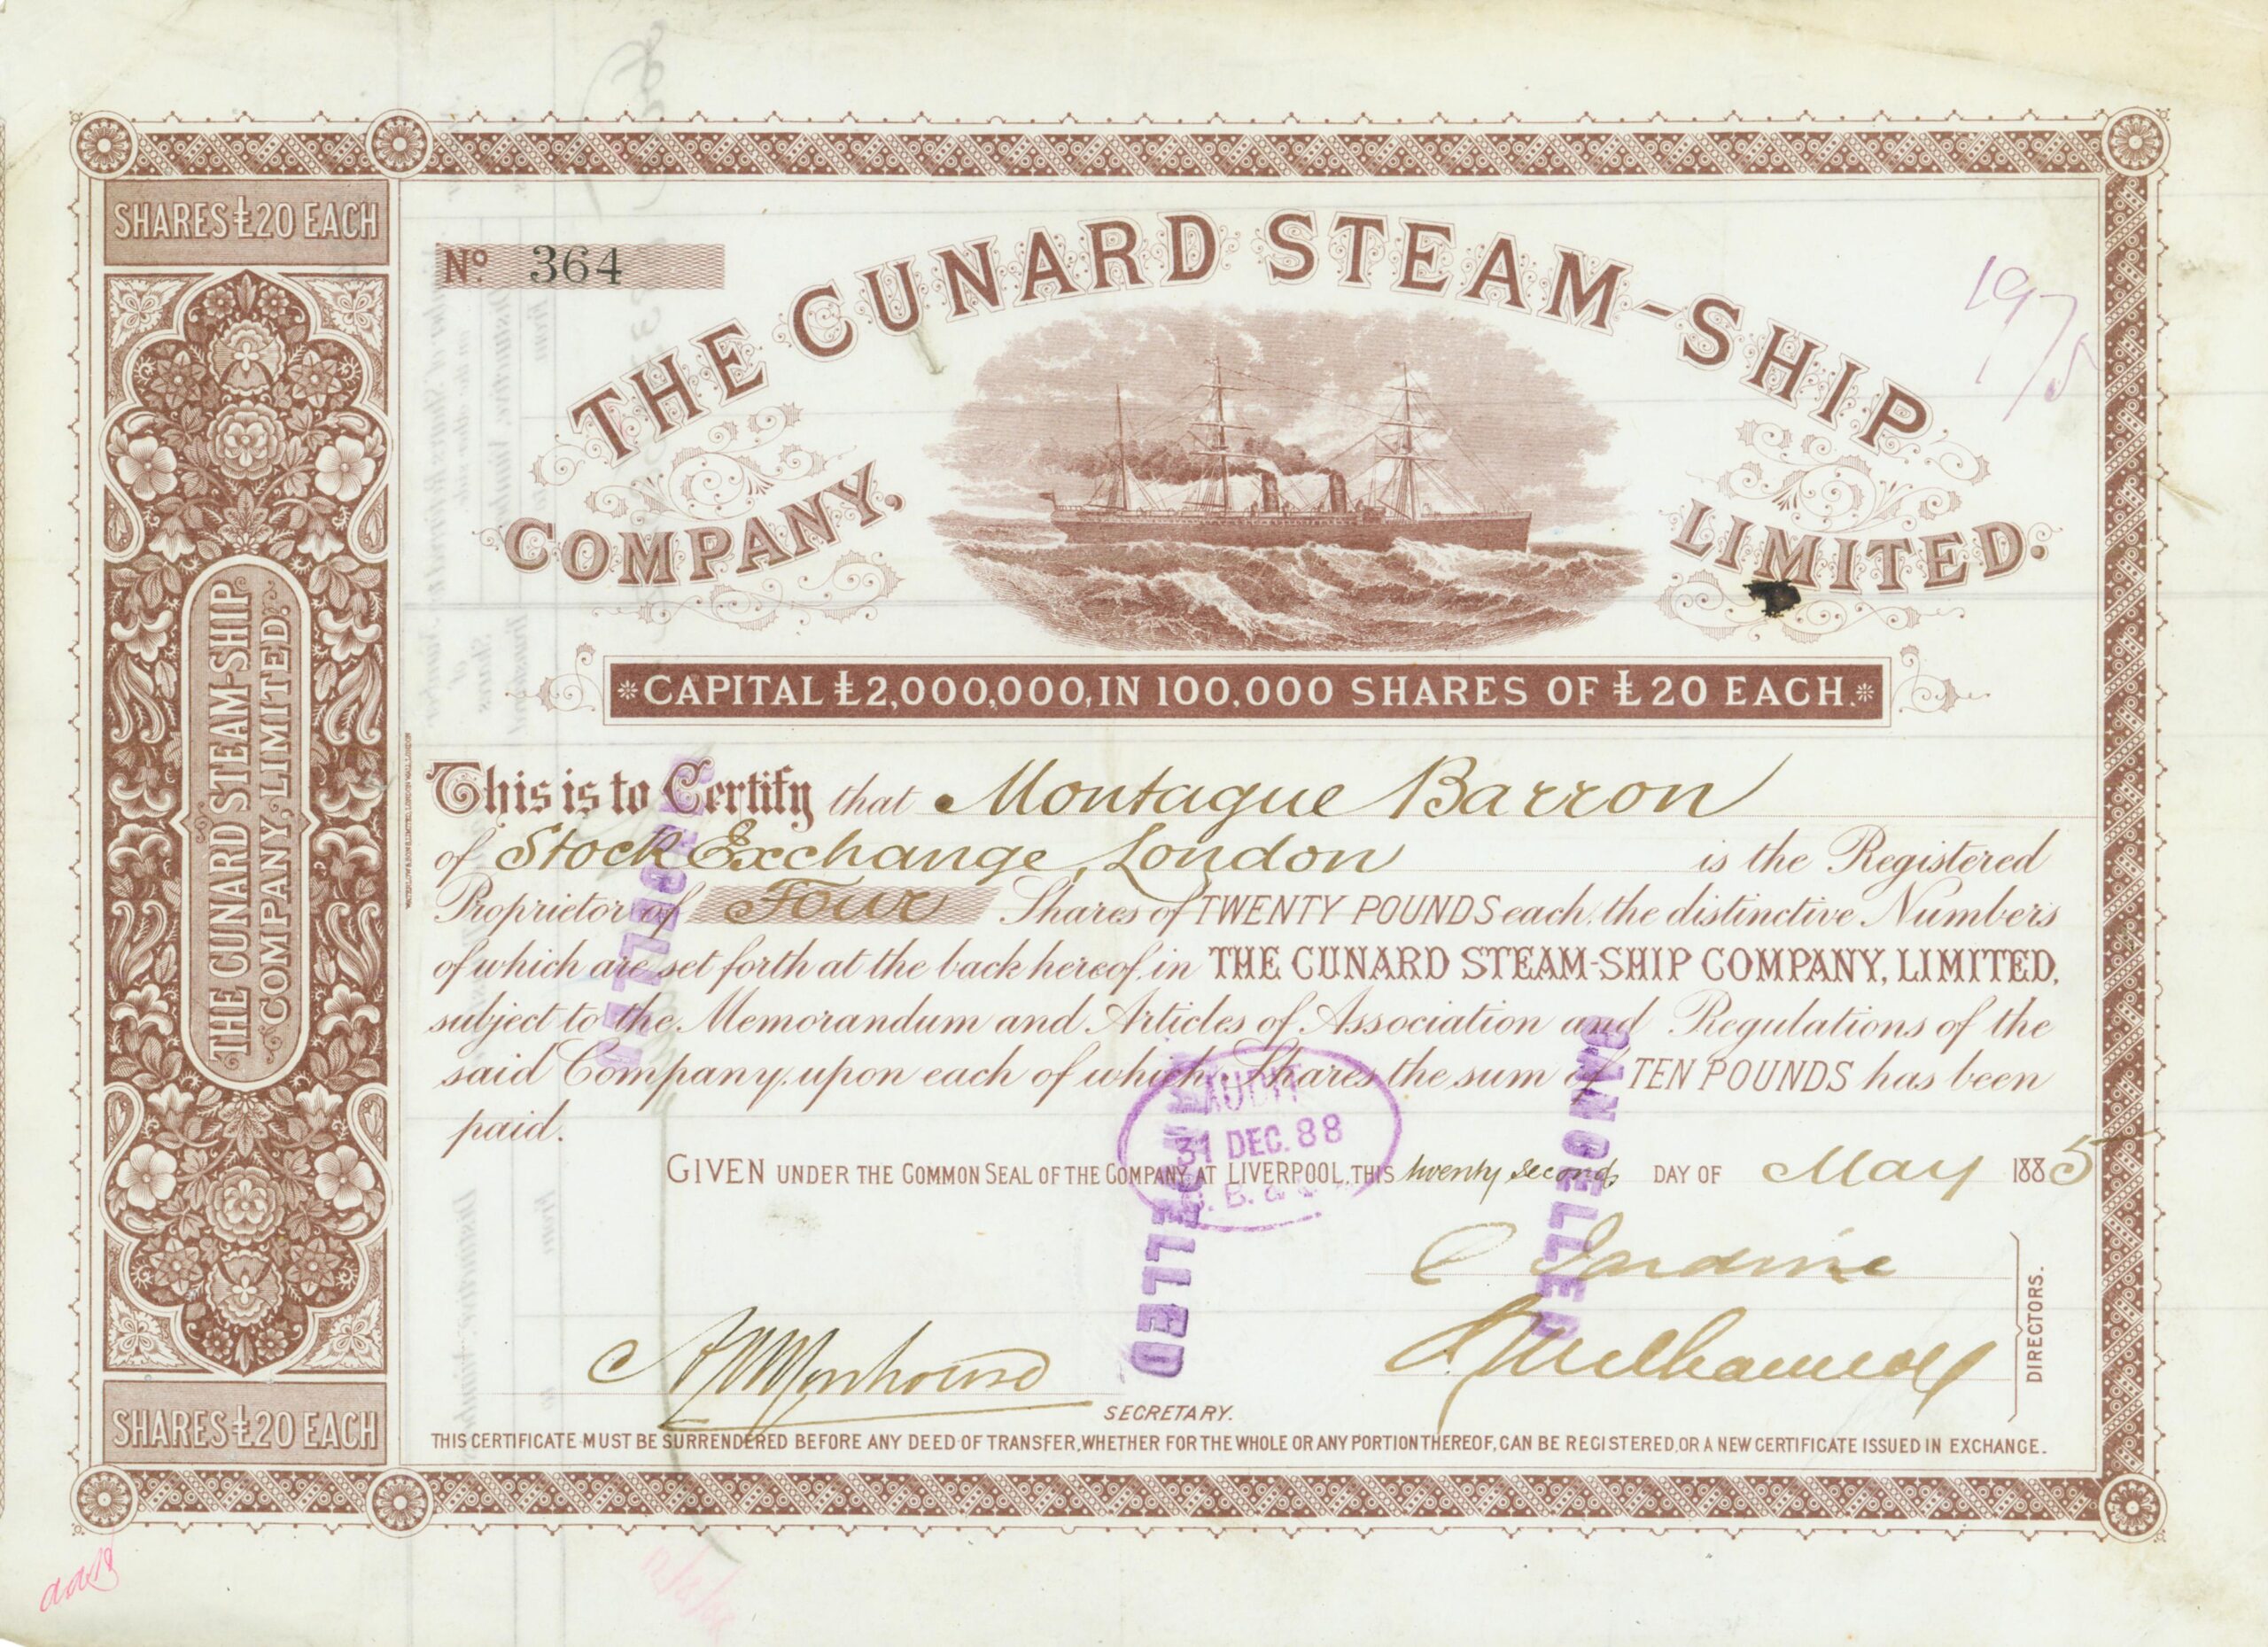 SHARES £20 EACH
THE CUNARD STEAM-SHIP
COMPANY, LIMITED.
SHARES £20 EACH
No. 364
197
THE CUNARD STEAM-SHIP
COMPANY, LIMITED.
CAPITAL £2,000,000, IN 100,000 SHARES OF £20 EACH.
This is to Certify that Montague Barron
of Stock Exchange, London is the Registered
Proprietor of Four Shares of TWENTY POUNDS each, the distinctive Numbers
of which are set forth at the back hereof, in THE CUNARD STEAM-SHIP COMPANY, LIMITED,
subject to the Memorandum and Articles of Association and Regulations of the
said Company, upon each of which Shares the sum of TEN POUNDS has been
paid.
CANCELLED
CANCELLED
CANCELLED
AUDIT
31 DEC. 88
GIVEN UNDER THE COMMON SEAL OF THE COMPANY AT LIVERPOOL, THIS twenty second DAY OF May 1885
DIRECTORS.
SECRETARY.
THIS CERTIFICATE MUST BE SURRENDERED BEFORE ANY DEED OF TRANSFER, WHETHER FOR THE WHOLE OR ANY PORTION THEREOF, CAN BE REGISTERED, OR A NEW CERTIFICATE ISSUED IN EXCHANGE.